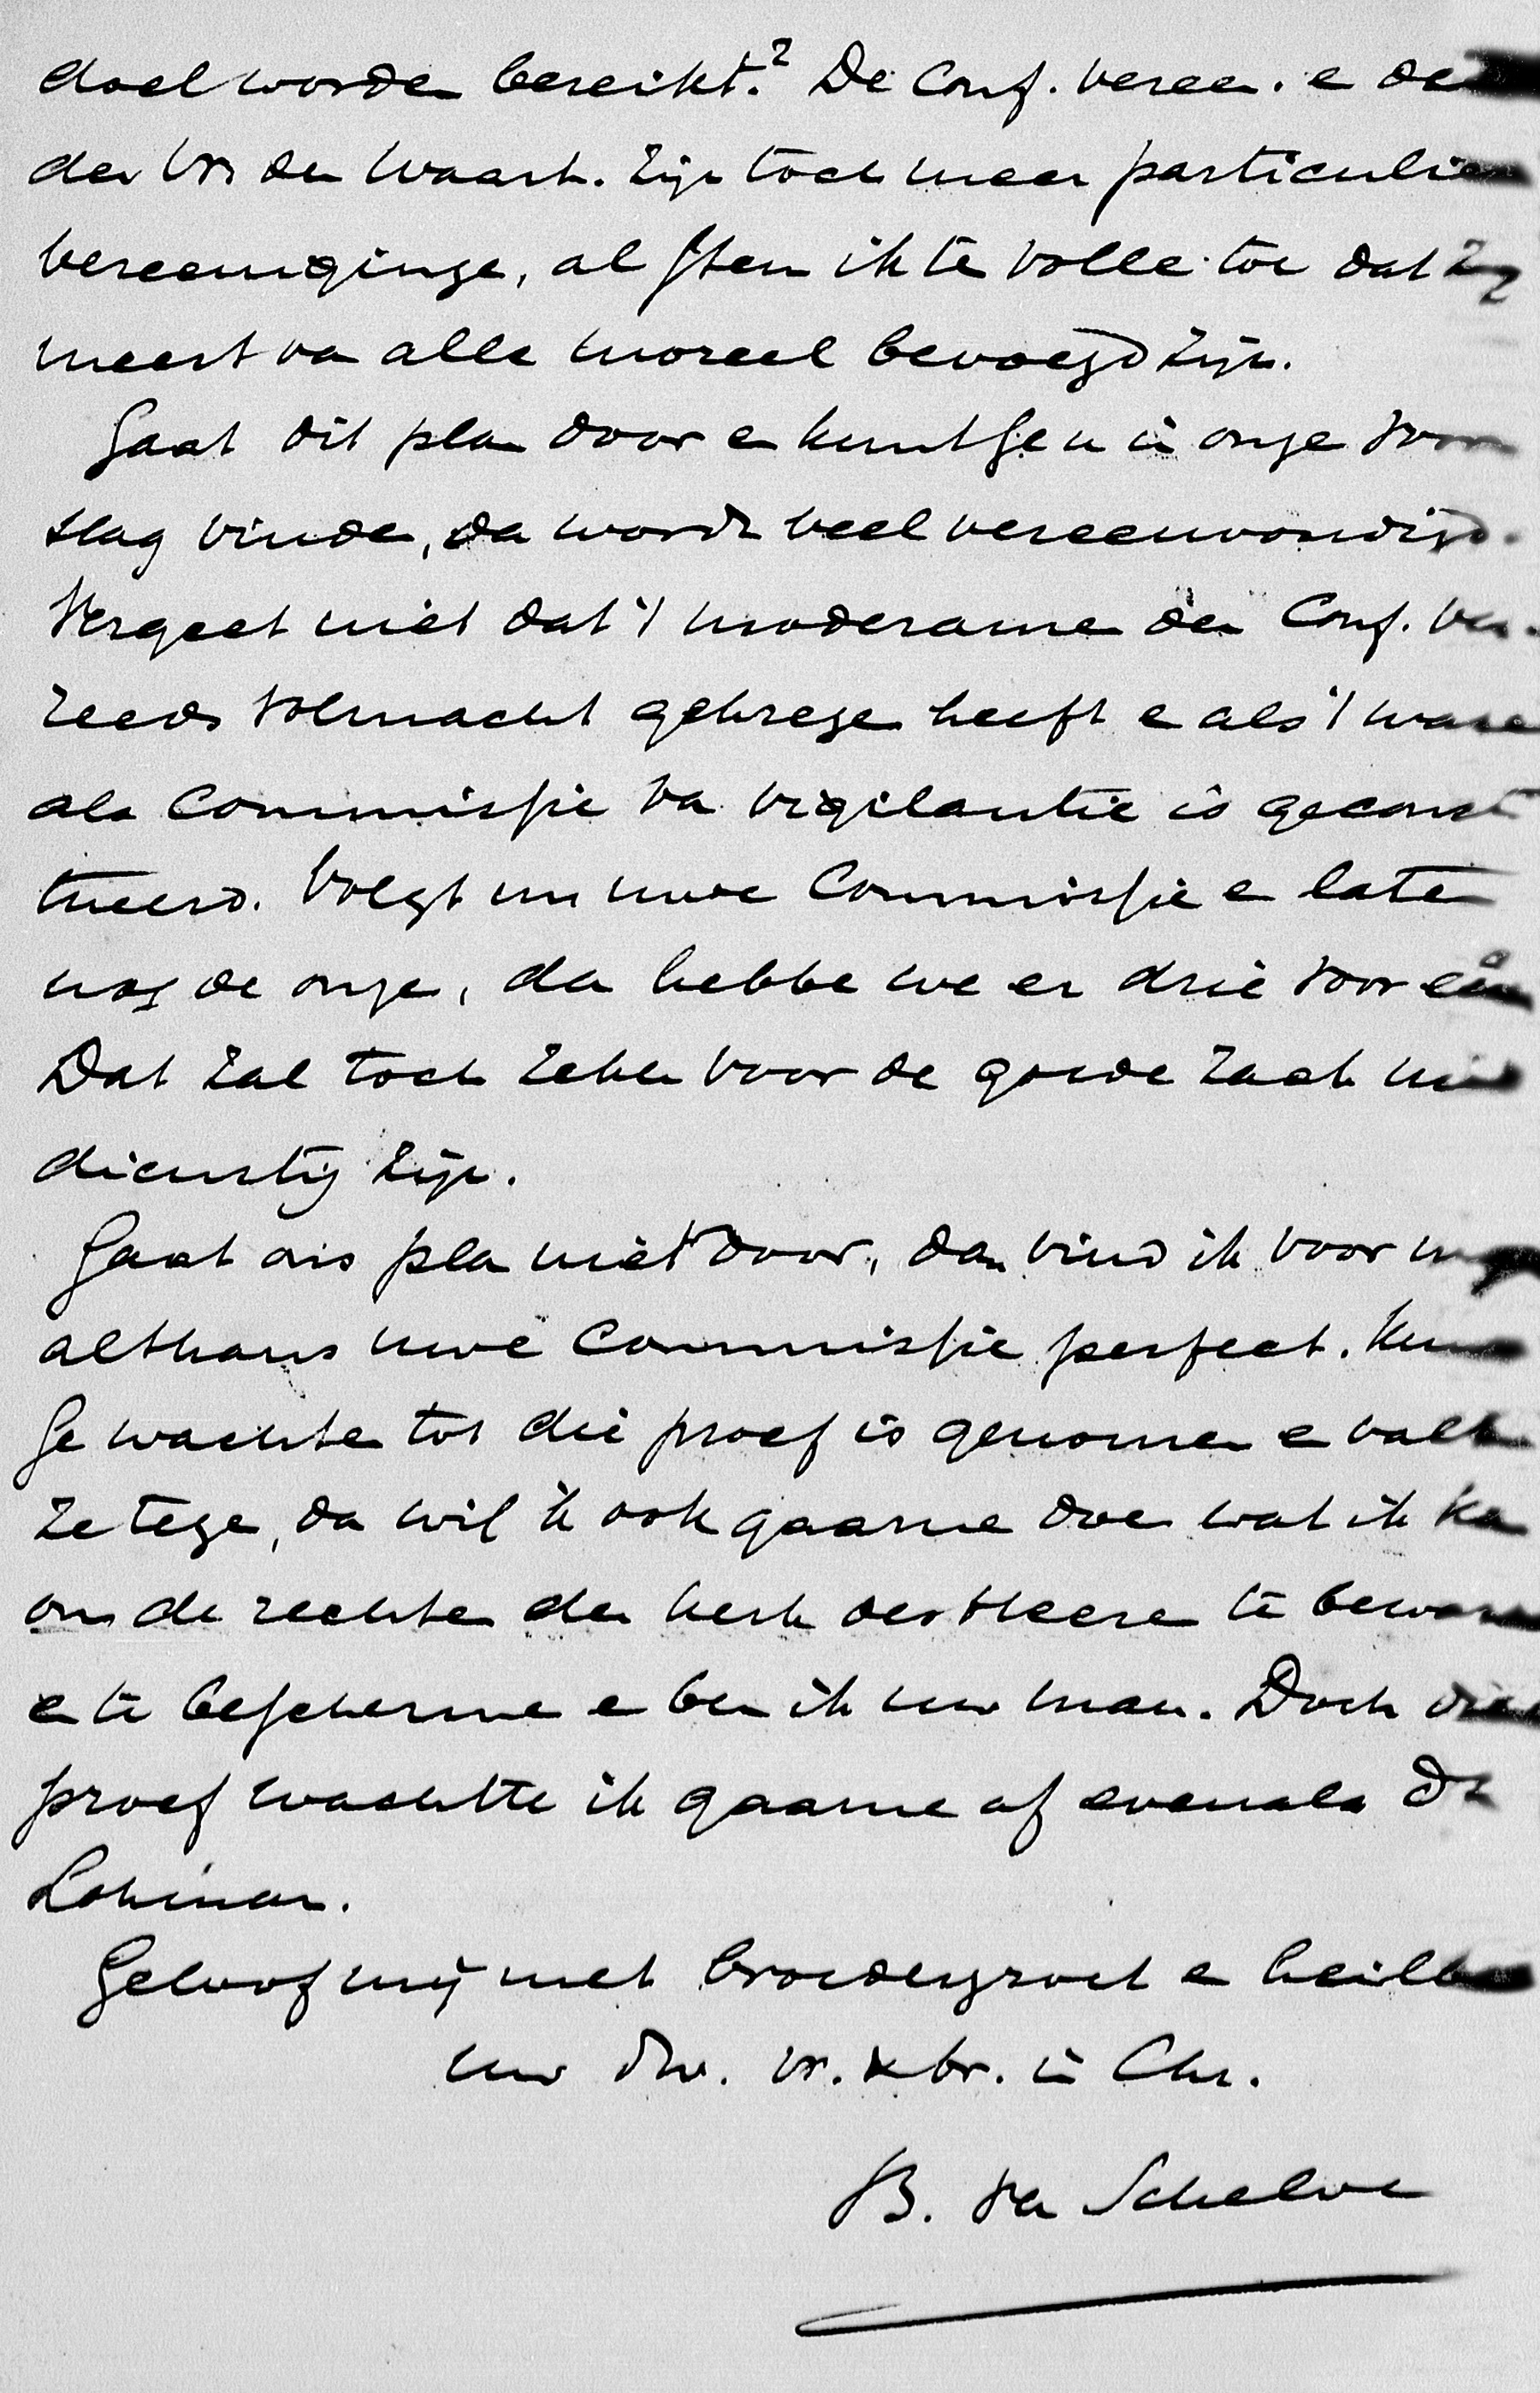 doel worden bereikt? De Conf. vereen. e de
der Vr. der Waarh. zijn toch meer particulier
vereeniginge, al stem ik te volle toe dat zij
meest va alle moreel bevoegd zijn.
Gaat dit pla door e kunt Ge u i onze voor
slag vinde, da wordt veel vereenvoudigd.
Vergeet niet dat 't moderame der Conf. ver.
reeds volmacht gekrege heeft e als 't ware
als Commissie va vigilantie is geconst
tueerd. Volgt nu uwe Commissie e late
nog de onze, da hebbe we er drie voor één
Dat zal toch zeker voor de goede zaak niet
dienstig zijn.
Gaat ons pla niet door, dan vind ik voor mij
althans uwe Commissie perfect. Kunt
Ge wachte tot die proef is genomen e valt
ze tege, da wil ik ook gaarne doe wat ik ka
om de rechten der kerk des Heere te beware
e te bescherme e ben ik uw man. Doch die
proef wachtte ik gaarne af evenals Dr
Lohman.
Geloof mij met broedergroet e heilbe
uw dw. vr. & br. i Chr.
B. va Schelve